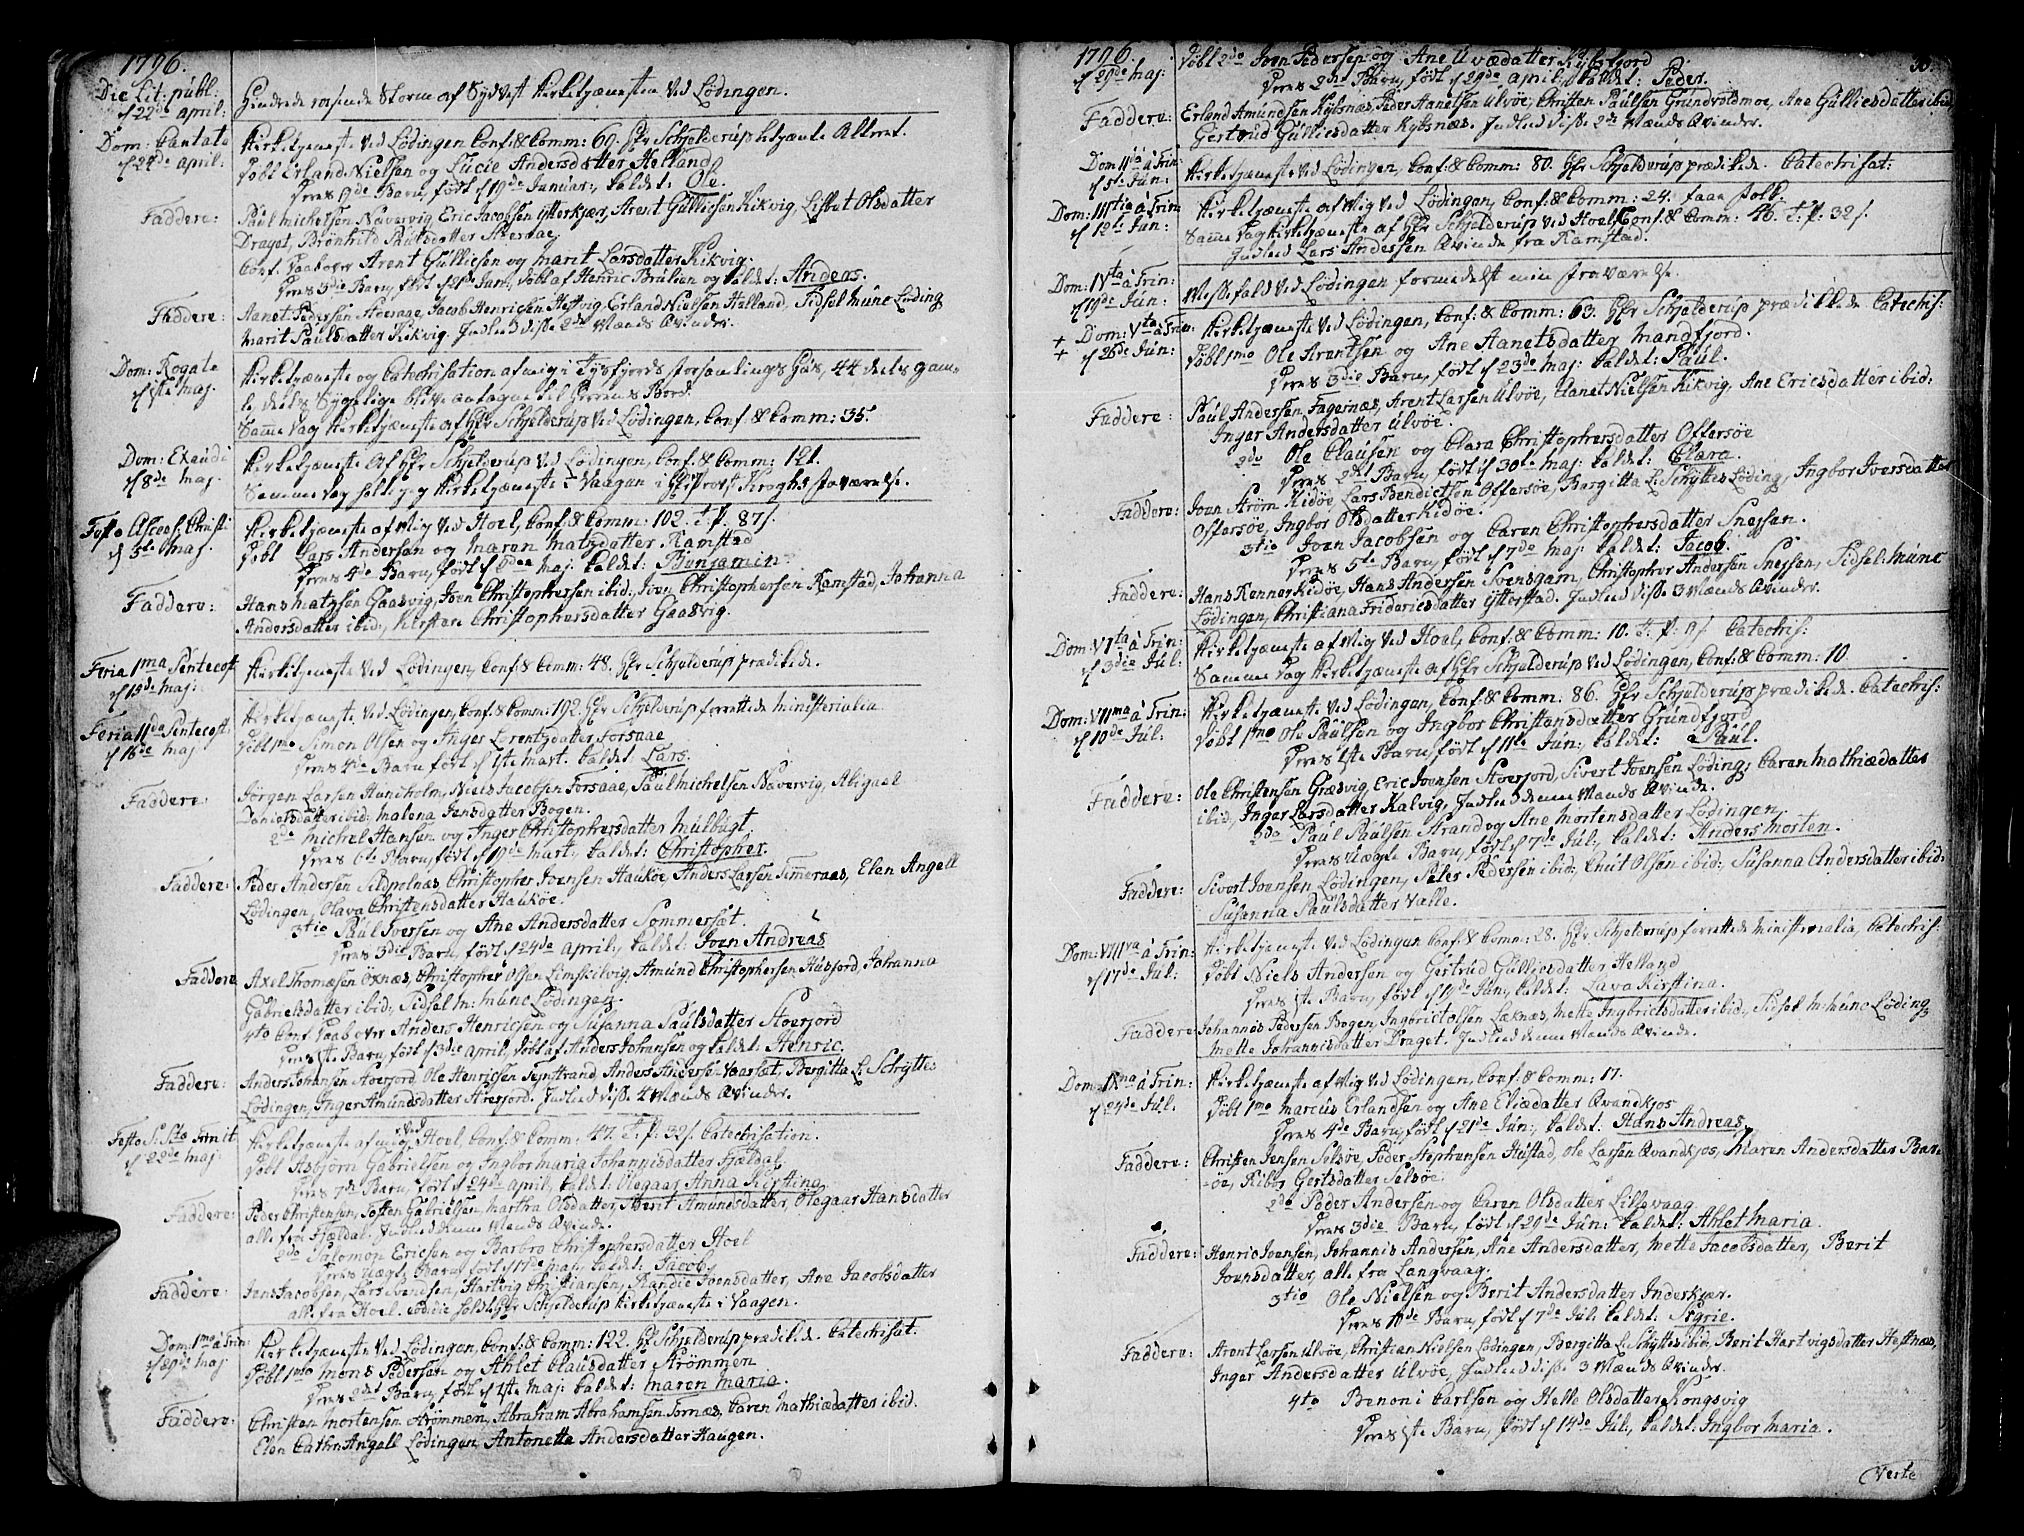 1796.
Die Lit: públ.
d 22de April:
Hindrede rasende Storm af Sydvest Kirketjænesten ved Lödingen.
Dom: Cantate
d 24de April:
Kirketjæneste ved Lödingen, Conf: & Comm: 60. Hr Schjelderup betjænte Alteret.
Döbt Erland Nielsen og Lucie Andersdatter Helland
Deres 9de Barn, födt d 19de Januar:, kaldet: Ole.
Faddere:
Paul Michelsen Navervig, Eric Jacobsen Ytterkjær, Arent Gülliesen Kikvig, Lisbet Olsdatter
Draget, Brönhild Paulsdatter
Conf. Daab over Arent Gülliesen og Marit Larsdatter Kikvig.
Deres 3die Barn, födt d Jan, döbt af Henric og kaldet: Andeas.
Faddere:
Aanet Pedersen, Jacob Henricsen Hestvig, Erland Nielsen Helland, Sidsel Münc Löding
Marit Paulsdatter Kikvig. Indled disse 2de Mænds Qvinder.
Dom: Rogate
d 1ste Maj.
Kirketjæneste og Catechisation af mig i Tysfjords Forsamlings Hús, 44 deels gam-
le, deels Sygelige bleve antagne til Herrens Bord.
Samme Dag Kirketjæneste af Hr Schjelderúp ved Lödingen, Conf: & Comm: 35.
Dom: Exaudi
d 8de Maj.
Kirketjæneste af Hr Schjelderúp ved Lödingen, Conf: & Comm: 121.
Samme Dag holdt jeg Kirketjæneste i Vaagen i Hr Provst Kroghs Fraværelse.
Festo Ascens: Christi
d 5te Maj.
Kirketjæneste af Mig ved Hoel, Conf: & Comm: 102. T. P. 87 s.
Döbt Lars Andersen og Maren Matsdatter Ramstad
Deres 4de Barn, födt d Maj: kaldet: Benjamin
Faddere:
Hans Matzsen Gaasvig, Joen Christophersen ibid:, Joen Christophersen Ramstad, Johanna
Andersdatter ibid:, Kirsten Christophersdatter Gaasvig.
Feria 1ma Pentecost
d 15de Maj:
Kirketjeneste ved Lödingen, Conf: & Comm: 48. Hr Schjelderup prædikede.
Feria IIda Pentecost.
d 16de Maj:
Kirketjæneste ved Lödingen, Conf: & Comm: 192. Hr Schjelderup forrettede ministerialia.
Döbt 1mo Simon Olsen og Inger Lorentzdatter Forsaae
Deres 4de Barn födt d 1ste Mart. kaldet Lars.
Faddere:
Jörgen Larsen Haneholm, Niels Jacobsen Forsaae, Paul Michelsen Navervig, Abigael
Danielsdatter ibid: Malena Jensdatter Bogen.
2do Michel Hansen og Inger Christophersdatter Mulbügt
Deres 6te Barn, födt d 19de Mart., kaldet: Christopher.
Faddere:
Peder Andersen Sildpolnæs, Christopher Joensen Haukøe, Anders Larsen Timeraas, Elen Angell
Lödingen, Olava Christensdatter Haukøe.
3tio Paul Iversen og Ane Andersdatter Sommersæt.
Deres 3die Barn, födt d 24de April, kaldet: Joen Andreas
Faddere
Axel Thomæsen Öxnæs, Christopher Olsen Limskilvig, Amünd Christophersen Hüsfjord, Johanna
Gabrielsdatter ibid:, Sidsel M: Münc Lödingen.
4to Conf. Daab over Anders Henricsen og Susanna Paulsdatter Stoerfjord
Deres 1ste Barn, födt d 3die April, döbt af Anders Johansen og kaldet: Henric.
Faddere:
Anders Johansen Stoerfjord, Ole Henricsen, Anders Andersen Vaarsæt, Bergitta L: Schÿttes
Lödingen, Inger Amündsdatter Stoerfjord. Indled disse 4 Mænds Qvinder.
Festo S:Stæ Trinit
d 22de Maj:
Kirketjæneste af mig ved Hoel, Conf: & Comm: 47. T. P. 32 s. Catechisation.
Döbt Asbjörn Gabrielsen og Ingbor Maria Johannisdatter Fjældal.
Deres 7de Barn, födt d 24de April, kaldet: Olegaar Anna Kirstina.
Faddere:
Peder Christensen, Gabrielsen, Martha Olsdatter, Berit Amündsdatter, Olegaar Hansdatter
alle fra Fjældal. Indled denne Mands Qvinde.
2do Salomon Ericsen og Barbro Christophersdatter Hoel
Deres Uægte Barn, födt d 17de Maj, kaldet: Jacob.
Faddere:
Jens Jacobsen, Lars Svendsen, Hartvig Christiansen, Randie Joensdatter, Ane Jacobsdatter
alle fra Hoel. Eodie holdt Hr Schjelderup Kirketjæneste i Vaagen.
Dom: 1ma á Trin:
d 29de Maj:
Kirketjæneste ved Lödingen, Conf: & Comm: 122. Hr Schjelderup prædikede. Catechisat:
Döbt 1mo Mons Pedersen og Ahlet Clausdatter Strömmen
Deres 2det Barn, födt d 1ste Maj: kaldet: Maren Maria.
Faddere:
Christen Mortensen Strömmen, Abraham Abrahamsen Fornæs, Caren Mathiædatter ibid.
Elen Cathr: Angell Lödingen, Antonette Andersdatter Haugen.
1796.
d 29de Maj:
Döbt 2do Joen Pedersen og Ane Uvædatter Kÿbsfjord
Deres 2det Barn, födt d 29de April: kaldet: Peder.
30.
Faddere:
Erland Amündsen Kÿbsnæs, Peder Aanetsen Ulvöe, Christen Paulsen Grundvoldmoe, Ane Gülliesdatter ibid:
Gertrud Gülliesdatter Kÿbsnæs. Indled disse 2de Mænds Qvinder.
Dom: IIda á Trin:
d 5te Jün:
Kirketjæneste ved Lödingen, Conf: & Comm: 80. Hr Schjelderup prædikede. Catechisat:
Dom: IIItia á Trin
d 12te Jun:
Kirketjæneste af Mig ved Lödingen, Conf: & Comm: 24. faae Folk.
Samme Dag Kirketjæneste af Hr Schjelderup ved Hoel, Conf: & Comm: 46. T. P. 32 s.
Indled Lars Andersen Qvinde fra Ramstad.
Dom: IVta á Trin:
d 19de Jün:
Messefald ved Lödingen formedelst min Fraværelse.
+ Dom: Vta á Trin:
+ d 26de Jún:
Kirketjæneste ved Lödingen, Conf: & Comm: 63. Hr Schjelderup prædikede Catechis:
Döbt 1mo Ole Arentsen og Ane Aanetsdatter Mandfjord.
Deres 3die Barn, födt d 23de Maj: kaldet: Paul.
Faddere:
Paul Andersen Fagernæs, Arent Larsen Ulvöe, Aanet Nielsen Kikvig, Ane Ericsdatter ibid:
Inger Andersdatter Ulvöe.
2do Ole Clausen og Clara Christophersdatter Offersöe
Deres 2det Barn, födt d 30te Maj: kaldet: Clara.
Faddere:
Joen Ström Kidöe, Lars Bendictsen Offersöe, Bergitta L: Schÿttes Löding, Ingbor Iversdatter
Offersöe, Ingbor Olsdatter Kidöe.
3tio Joen Jacobsen og Caren Christophersdatter Snessan.
Deres 5te Barn, födt d 7de Maj: kaldet: Jacob.
Faddere:
Hans Renner Kidöe, Hans Andersen Svensgam, Christopher Andersen Snessan, Sidsel: Münc
Lödingen, Christiana Fridericsdatter Ytterstad. Indled disse 3 Mænds Qvinder.
Dom: VIta á Trin:
d 3die Júl:
Kirketjæneste af Mig ved Hoel, Conf: & Comm: 10. T. P. Catechis:
Samme Dag Kirketjæneste af Hr Schjelderup ved Lödingen, Conf: & Comm: 10
Dom: VIIma á Trin:
d 10de Júl:
Kirketjæneste ved Lödingen, Conf: & Comm: 86. Hr Schjelderup prædikede. Catechis:
Döbt 1mo Ole Paulsen og Ingbor Christensdatter Grundfjord
Deres 1ste Barn, födt d 11te Jun:, kaldet: Paul.
Faddere:
Ole Christensen Græsvig, Eric Joensen Stoerfjord, Sivert Joensen Löding, Caren Mathiædatter
ibid, Inger Larsdatter Kalvig, Indled denne Mands Qvinde.
2do Paul Paulsen Strand og Ane Mortensdatter Lödingen.
Deres Uægte Barn, födt d 7de Júl:, kaldet: Anders Morten.
Faddere:
Sivert Joensen Lödingen, Peter Pedersen ibid:, Cnut Olsen ibid:, Susanna Andersdatter ibid:
Susanna Paulsdatter Valle.
Dom: VIIIva á Trin:
d 17de Júl:
Kirketjæneste ved Lödingen Conf: & Comm: 28. Hr Schjelderup forrettede ministerialia, Catechis:
Döbt Niels Andersen og Gertrud Gülliesdatter Helland
Deres 1ste Barn, födt d 19de Jún:, kaldet: Lava Kirstina.
Faddere
Johannis Pedersen Bogen, Ingbrict Olsen Læknæs, Mette Ingbrictsdatter ibid:, Sidsel M: Münc Löding
Mette Johannisdatter Draget. Indled denne Mands Qvinde.
Dom: IXna á Trin:
d 24de Júl.
Kirketjæneste af Mig ved Lödingen, Conf: & Comm: 17.
Döbt 1mo Marcus Erlandsen og Ane Eliædatter Qvandkjos
Deres 4de Barn, födt d 21de Jún:, kaldet: Hans Andreas.
Faddere:
Christen Jensen Selsöe, Peder Stephensen Hustad, Ole Larsen Qvandkjos, Maren Andersdatter Bar-
öe, Kibor Gertsdatter Selsöe.
2do Peder Andersen og Caren Olsdatter Lillevaag
Deres 3die Barn, födt d 29de Jún: kaldet: Ahlet Maria.
Faddere:
Henric Joensen, Johannis Andersen, Ane Andersdatter, Mette Jacobsdatter, Berit
Joensdatter, alle fra Langvaag.
3tio Ole Nielsen og Berit Andersdatter Inderkjær.
Deres 10de Barn, födt d 7de Júl: kaldet: Sigrie.
Faddere:
Arent Larsen Ulvöe, Christian Nielsen Lödingen, Bergitta L: Schÿttes ibid, Berit Hartvigsdatter Hestnæs,
Inger Andersdatter Ulvöe, Indled disse 3 Mænds Qvinder.
4to Benoni Carlsen og Helle Olsdatter Kongsvig
Deres 1ste Barn, födt d 14de Júl:, kaldet: Ingbor Maria.
Verte